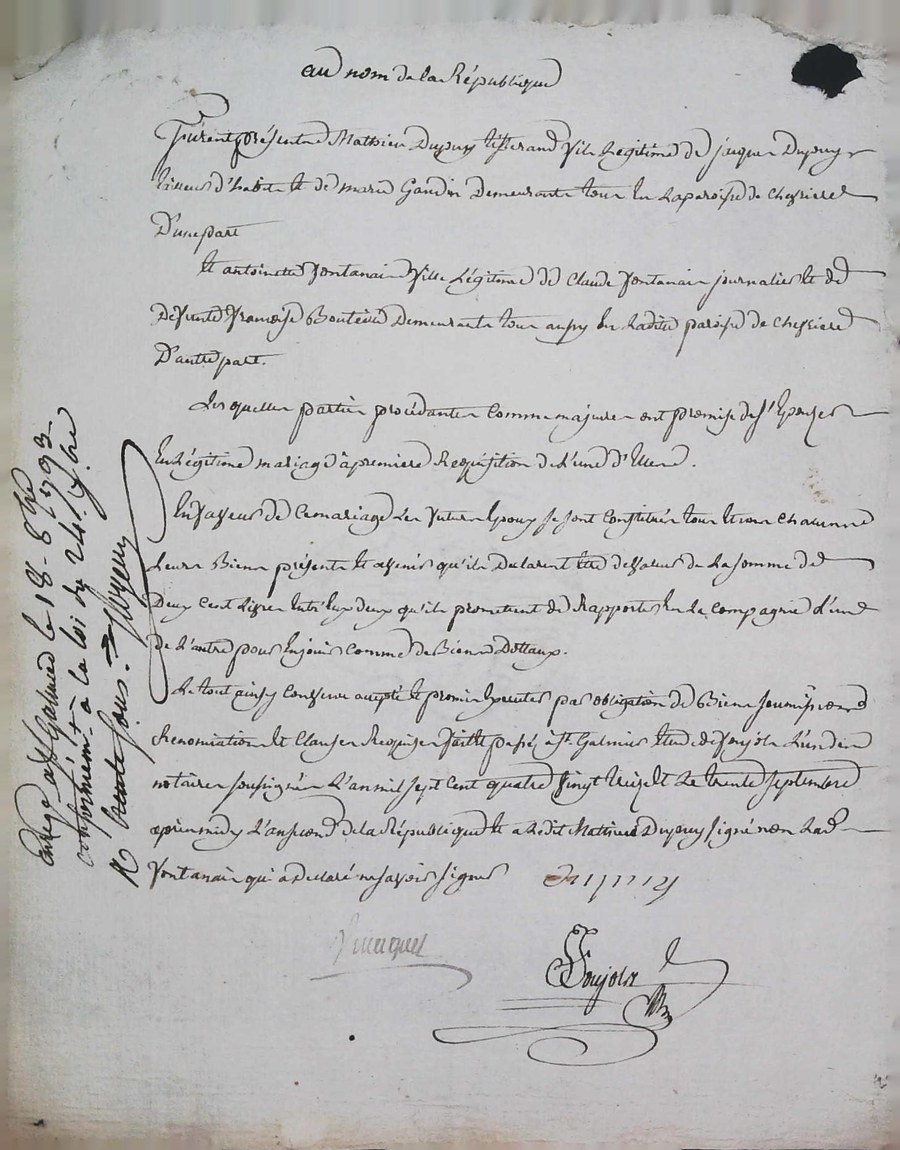 au nom de la République
furent présentes Mathieu Dupuy tisserand fils Légitime de jaques Dupuy
tailleur d'habit et de marie Gaudin Demeurants tous En La paroisse de chevriere
D'une part
Et antoinette fontanai fille Légitime de Claude fontanai journalier Et de
Défunte francoise Demeurante tous aussy En Ladite paroisse de chevriere
D'autre part.
Les quelles parties procédantes Comme majeures ont promise de s'Epouser
En Légitime mariage à premiere Requisition de L'une d'Elles.
En faveurs de Ce mariage Les futurs Epoux se sont Constitués tous Et un chacunne
Leurs Biens présents Et avenir qu'ils Declarent Etre de valeur de La somme de
Deux Cent Livres Entr'Eux deux qu'ils prometent de Rapporter En La Compagnie L'une
de L'autre pour En jouir Comme de Biens Dottaux.
Le tout ainsy Convenu accepté Et promis Executer par obligation de Biens soumissions
Renonciation Et Clauses Requises fait Et passé à St Galmier Etude de foujols L'un des
notaires soussignés L'an mil sept Cent quatre vingt treize Et Le trente septembre
après midy L'an second de la République Et a Ledit Mathieu Dupuy signé non Lad
fontanai qui a Declaré ne savoir signer Dupuy
foujols
enreg. a St Galmier le 18. 8bre 1793
conformémt. à la loi du 24 7.bre
R trente sous.